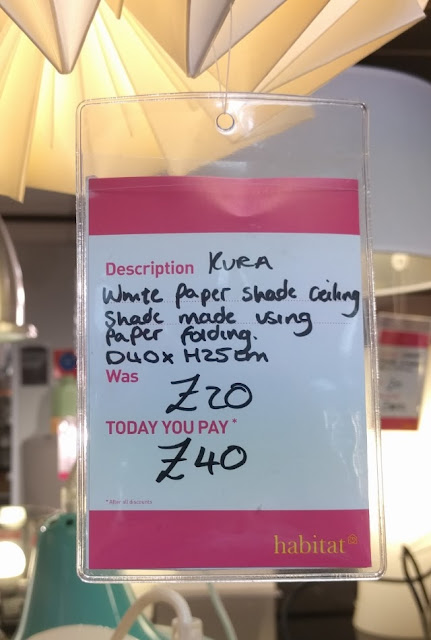 Description KURA
White paper shade ceiling
shade made using
paper folding.
D40 x H25cm
Was
£20
TODAY YOU PAY*
£40
* After all discounts
habitat